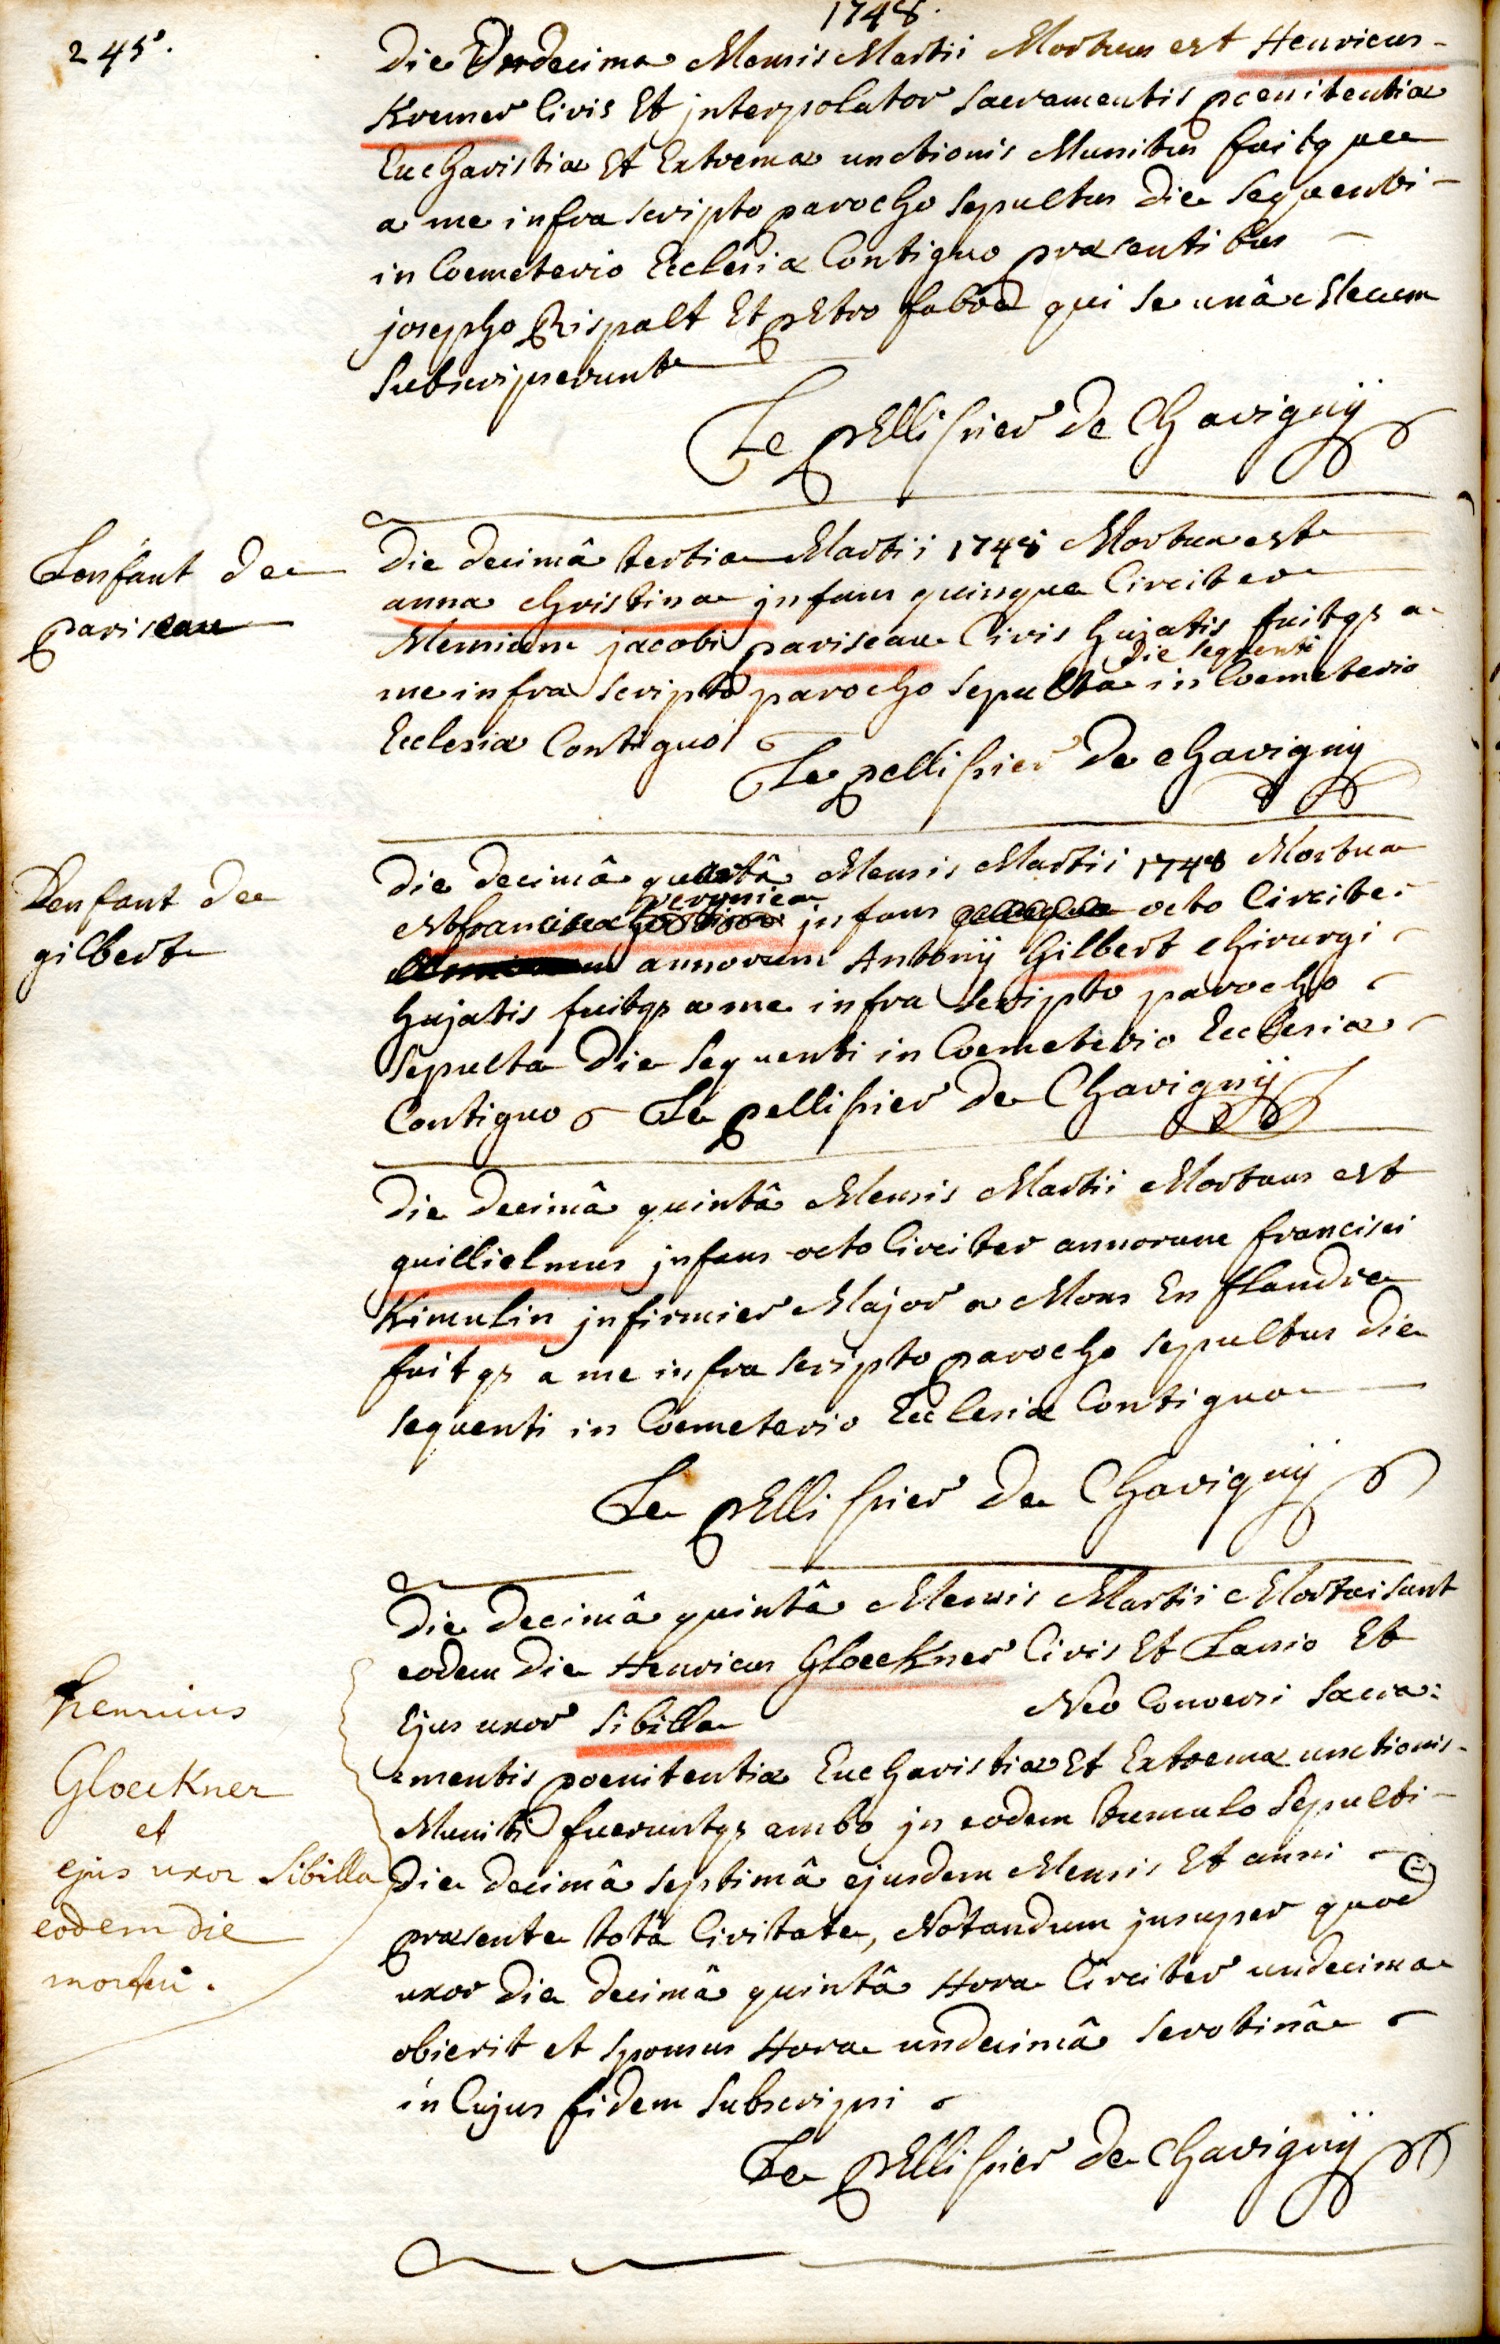 1748.
245.
Die Undecima Mensis Martii Mortuus est Henricus
Kremer Civis Et jnterpolator Sacramentis pœnitentiæ
Eucharistiæ Et Extremæ unctionis Munitus fuitque
a me infra scripto parocho sepultus Die sequenti
in Coemeterio Ecclesiæ Contiguo præsentibus
josepho Rispalt Et pEtro fabvd qui se unâ Mecum
Subscripserunt
Le pEllissier De Chavignÿ
Lenfant de
pariseau
Die decimâ tertia Martii 1748 Mortua est
anna christina jnfans quinque Circiter
Mensium jacobi pariseau Civis hujatis fuitqs a
die sequenti
me infra scripto parocho sepulta in Coemeterio
Ecclesiæ Contiguo
Le pellissier De chavignÿ
Lenfant de
gilbert
Die decimâ quartâ Mensis Martii 1748 Mortua
veronica
est francisca jnfans octo Circiter
annorum Antonÿ Gilbert chirurgi
hujatis fuitqs a me infra scripto parocho
sepulta Die sequenti in Coemeterio Ecclesiæ
Contiguo Le pellissier De Chavignÿ
Die decimâ quintâ Mensis Martii Mortuus est
guillielmus jnfans octo Circiter annorum francisci
Kimulin jnfirmier Major a Mons En flandre
fuitqs a me infra scripto parocho sepultus die
sequenti in Coemeterio Ecclesiæ Contiguo
Le pEllissier De Chavignÿ
Die decimâ quintâ Mensis Martii Mortui sunt
eodem Die Henricus Gloeckner Civis Et Lanio Et
Ejus uxor Sibilla Neo Conversi Sacra:
mentis poenitentiæ Eucharistiæ Et Extremæ unctionis
Muniti fueruntqs ambo jn eodem tumulo Sepulti
Die decimâ septimâ ejusdem Mensis Et anni
præsente totâ Civitate, Notandum jnsuper quod
uxor Die decimâ quintâ Hora Circiter undecima
obierit et sponsus Hora undecimâ serotinâ
in Cujus fidem Subscripsi
Le pEllissier De Chavignÿ
henricus
Gloeckner
et
ejus uxor Sibilla
eodem die
mortui.